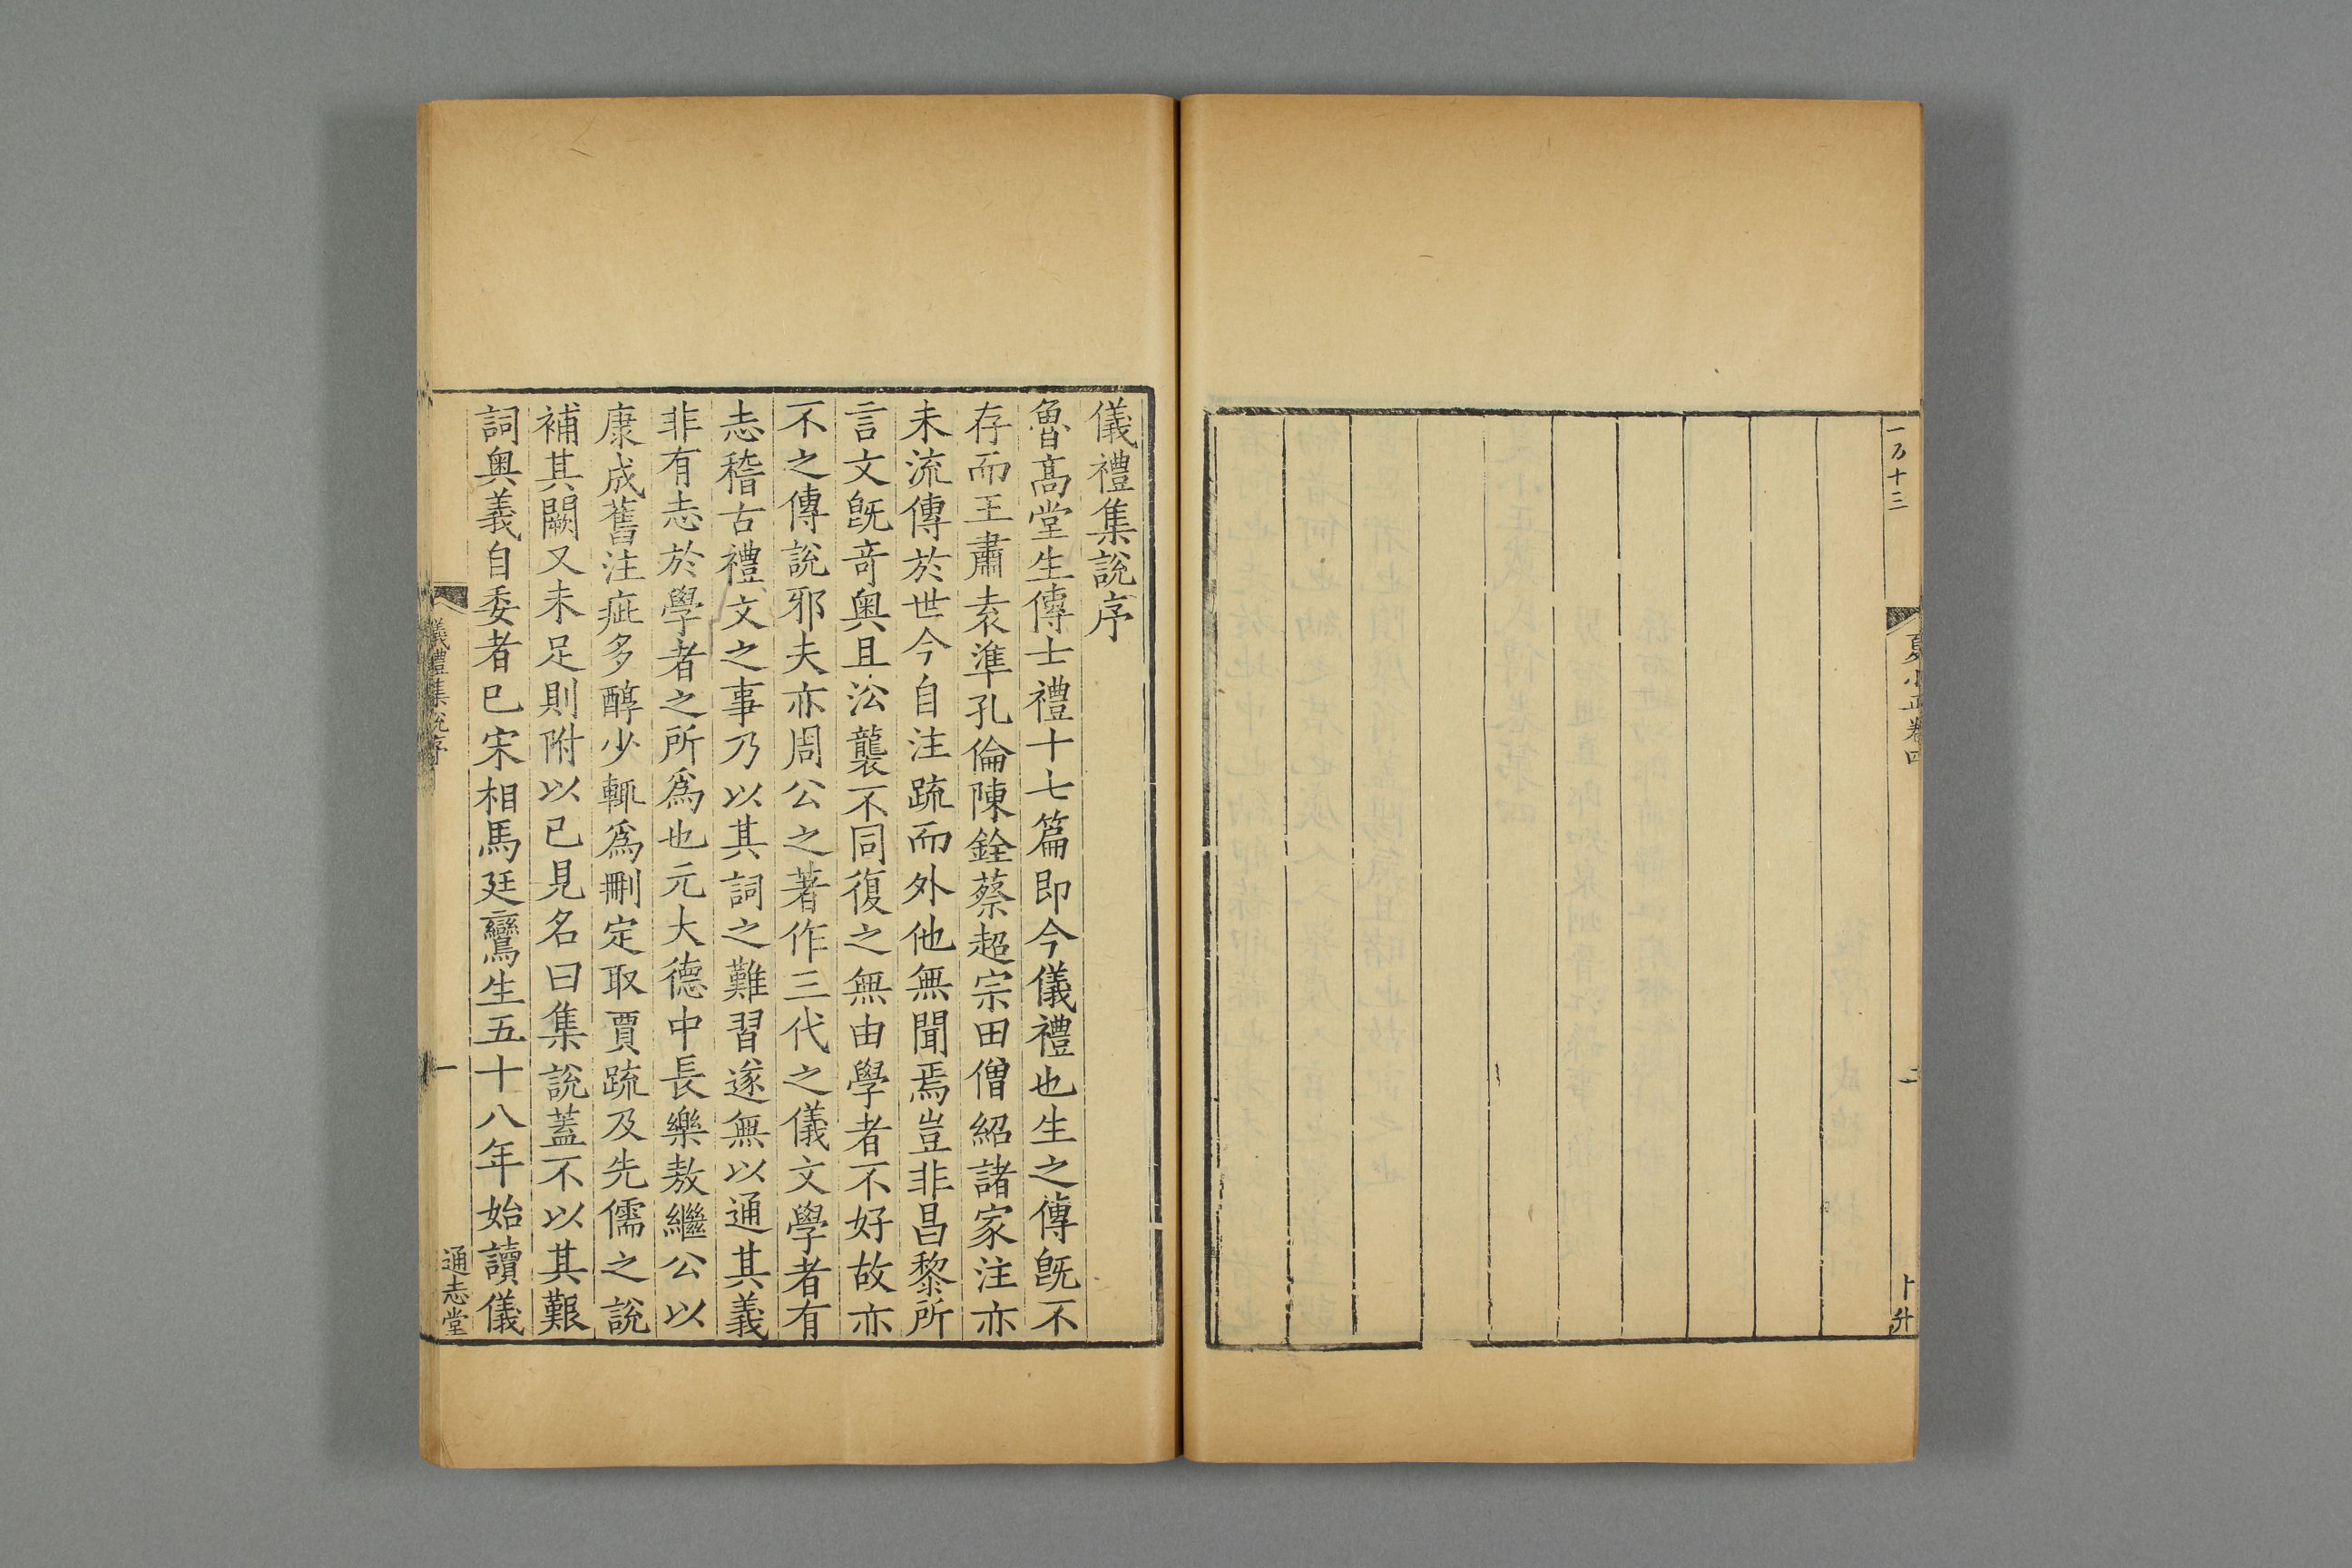 一万十三
夏小正卷四
卜升
儀禮集說序
魯髙堂生傳士禮十七篇即今儀禮也生之傳旣不
存而王肅袁準孔倫陳銓蔡超宗田僧紹諸家注亦
未流傳於世今自注疏而外他無聞焉豈非昌黎所
言文旣竒奥且㳂襲不同復之無由學者不好故亦
不之傳說邪夫亦周公之著作三代之儀文學者有
志稽古禮文之事乃以其詞之難習遂無以通其義
非有志於學者之所爲也元大德中長樂敖繼公以
康成舊注疵多醇少輒爲刪定取賈疏及先儒之說
補其闕又未足則附以已見名曰集說蓋不以其艱
詞奥義自委者已宋相馬廷鸞生五十八年始讀儀
儀禮集說序
一
通志堂